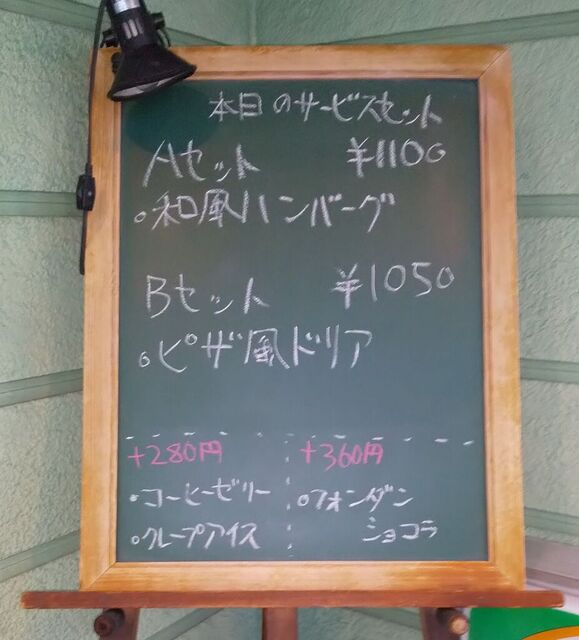 本日のサービスセット
Aセット ¥1100
。和風ハンバーグ
Bセット ¥1050
。ピザ風ドリア
+280円 +360円
・コーヒーゼリー ・フォンダン
・クレープアイス ショコラ